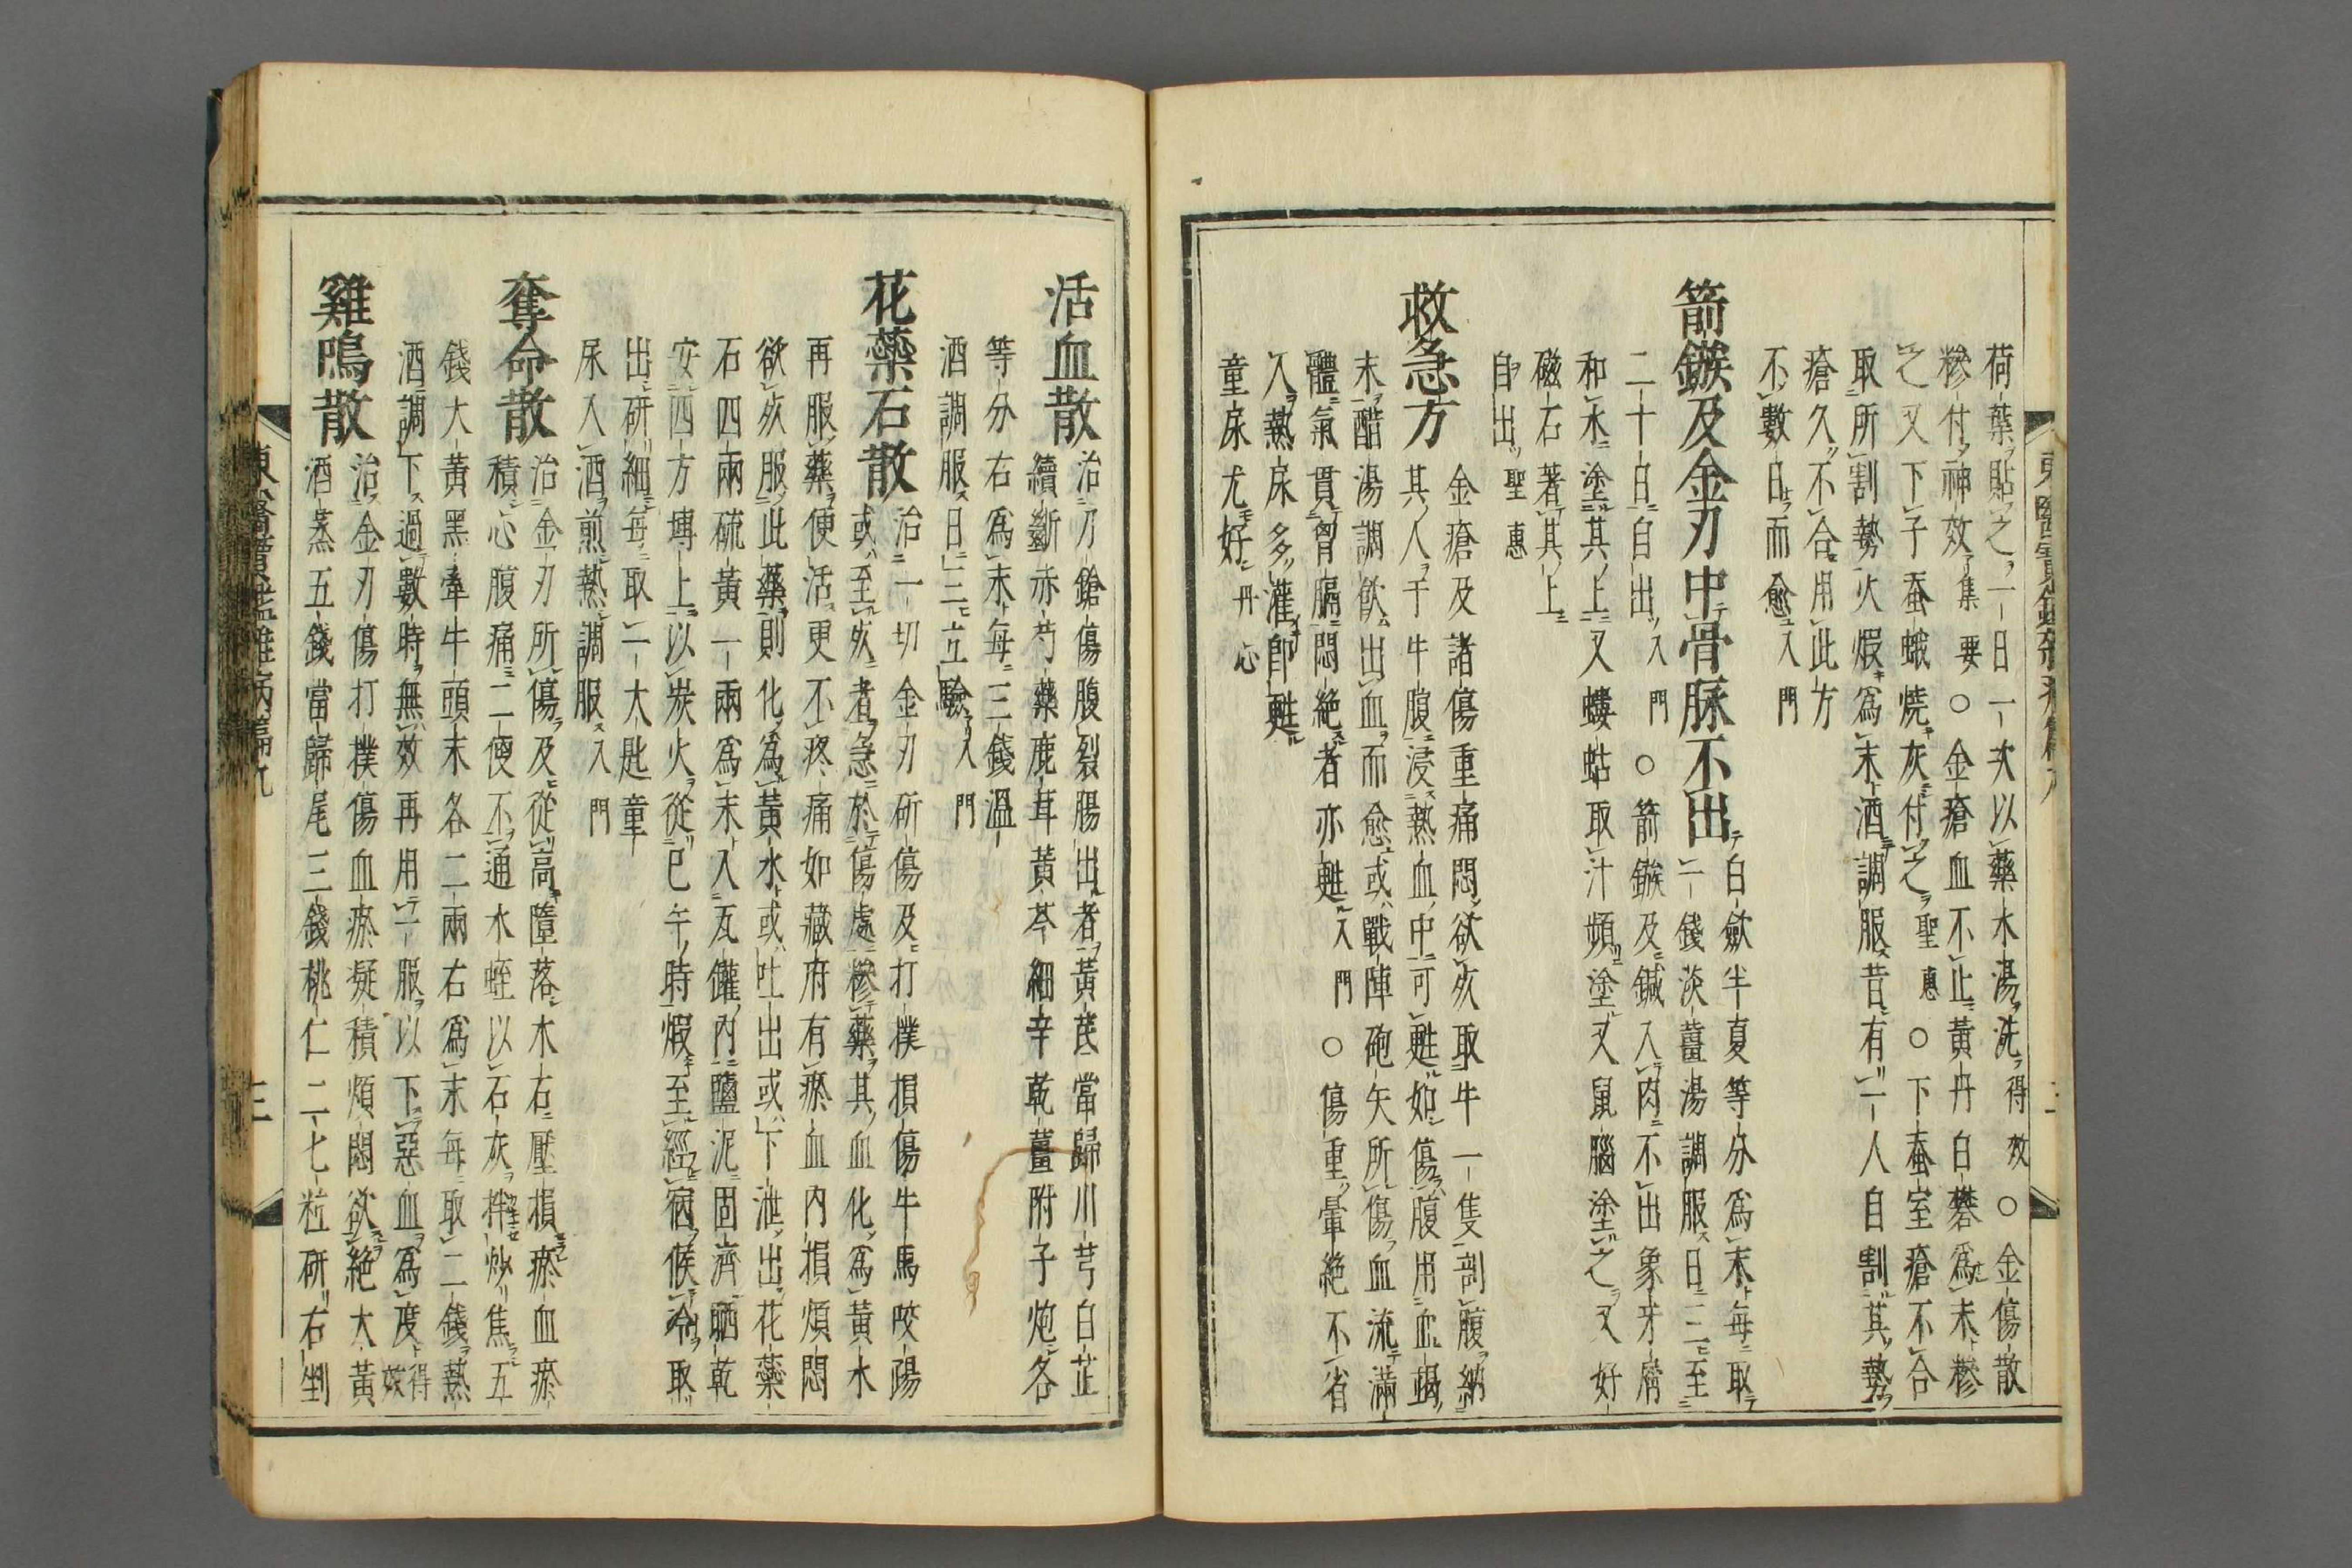 荷葉貼之一日一次以藥水湯洗得效○金傷散
糝付神效集要○金瘡血不止黃丹白礬爲末糝
之又下子蚕蛾燒灰付之聖惠○下蚕室瘡不合
取所割勢火煆爲末酒調服昔有一人自割其勢
瘡久不合用此方
不數日而愈入門
箭鏃及金刃中骨脉不出白斂半夏等分爲末每取
一錢淡薑湯調服日三至
二十日自出入門○箭鏃及鍼入肉不出象牙屑
和水塗其上又螻蛄取汁頻塗又鼠腦塗之又好
磁石著其上
自出聖惠
救急方金瘡及諸傷重痛悶欲死取牛一隻剖腹納
其人于牛腹浸熱血中可甦如傷腹用血竭
末醋湯調飮出血而愈或戰陣砲矢所傷血流滿
體氣貫胷膈悶絶者亦甦入門○傷重暈絶不省
人熱尿多灌卽甦
童尿尤好丹心
活血散治刀鎗傷腹裂腸出者黃芪當歸川芎白芷
續斷赤芍藥鹿茸黃芩細辛乾薑附子炮各
等分右爲末每三錢溫
酒調服日三立驗入門
花藥石散治一切金刃斫傷及打撲損傷牛馬咬踢
或至死者急於傷處糝藥其血化爲黃水
再服藥便活更不疼痛如藏府有瘀血內損煩悶
欲死服此藥則化爲黃水或吐出或下泄出花藥
石四兩硫黃一兩爲末入瓦罐內鹽泥固濟晒乾
安四方塼上以炭火從巳午時煆至經宿候冷取
出研細每取一大匙童
尿入酒煎熱調服入門
奪命散治金刃所傷及從高墮落木石壓損瘀血瘀
積心腹痛二便不通水蛭以石灰拌炒焦五
錢大黃黑牽牛頭末各二兩右爲末每取二錢熱
酒調下過數時無效再用一服以下惡血爲度得效
雞鳴散治金刃傷打撲傷血瘀凝積煩悶欲絶大黃
酒蒸五錢當歸尾三錢桃仁二七粒研右剉
東醫寶鑑雜病篇九
三